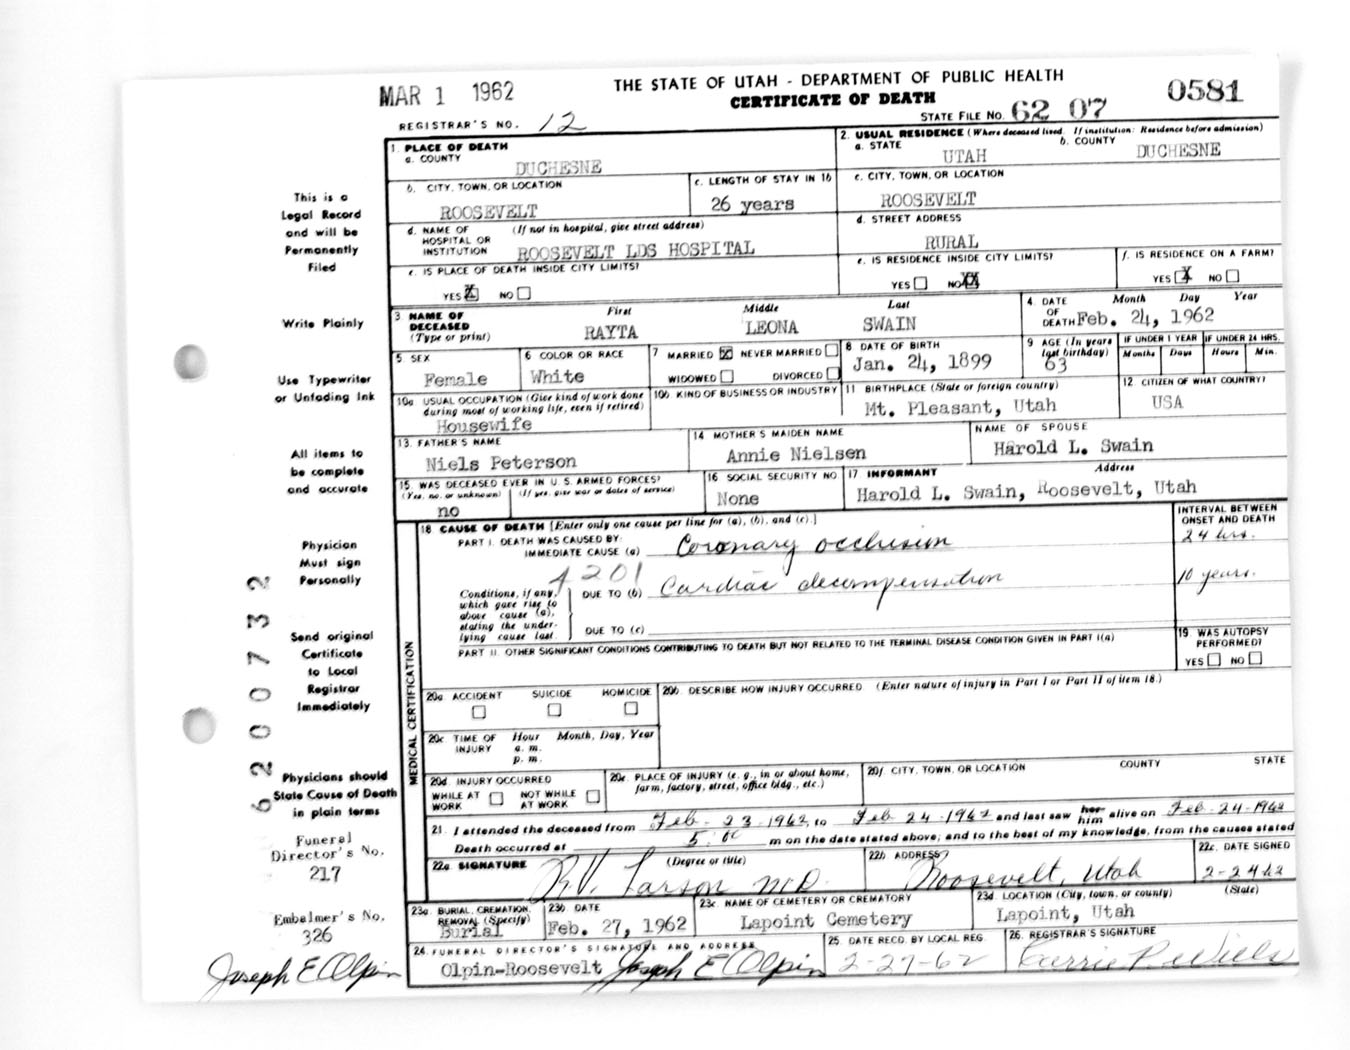 MAR 1 1962
THE STATE OF UTAH - DEPARTMENT OF PUBLIC HEALTH
CERTIFICATE OF DEATH
0581
REGISTRAR'S NO. 12
STATE FILE NO. 62 07
1. PLACE OF DEATH
a. COUNTY
DUCHESNE
2. USUAL RESIDENCE (Where deceased lived. If institution: Residence before admission)
a. STATE
UTAH
b. COUNTY
DUCHESNE
b. CITY, TOWN, OR LOCATION
ROOSEVELT
c. LENGTH OF STAY IN 1b
26 years
c. CITY, TOWN, OR LOCATION
ROOSEVELT
d. NAME OF HOSPITAL OR INSTITUTION
(If not in hospital, give street address)
ROOSEVELT LDS HOSPITAL
d. STREET ADDRESS
RURAL
e. IS PLACE OF DEATH INSIDE CITY LIMITS?
YES X NO
e. IS RESIDENCE INSIDE CITY LIMITS?
YES NO XX
f. IS RESIDENCE ON A FARM?
YES X NO
3 NAME OF DECEASED (Type or print)
First Middle Last
RAYTA LEONA SWAIN
4. DATE OF DEATH
Month Day Year
Feb. 24, 1962
5 SEX
Female
6 COLOR OR RACE
White
7 MARRIED X NEVER MARRIED
WIDOWED DIVORCED
8 DATE OF BIRTH
Jan. 24, 1899
9 AGE (In years last birthday)
63
IF UNDER 1 YEAR
Months Days
IF UNDER 24 HRS.
Hours Min.
10a. USUAL OCCUPATION (Give kind of work done during most of working life, even if retired)
Housewife
10b KIND OF BUSINESS OR INDUSTRY
11 BIRTHPLACE (State or foreign country)
Mt. Pleasant, Utah
12. CITIZEN OF WHAT COUNTRY?
USA
13. FATHER'S NAME
Niels Peterson
14 MOTHER'S MAIDEN NAME
Annie Nielsen
NAME OF SPOUSE
Harold L. Swain
15. WAS DECEASED EVER IN U.S. ARMED FORCES?
(Yes, no, or unknown) (If yes, give war or dates of service)
no
16 SOCIAL SECURITY NO
None
17 INFORMANT Address
Harold L. Swain, Roosevelt, Utah
MEDICAL CERTIFICATION
18 CAUSE OF DEATH [Enter only one cause per line for (a), (b), and (c).]
INTERVAL BETWEEN ONSET AND DEATH
PART I. DEATH WAS CAUSED BY:
IMMEDIATE CAUSE (a) Coronary occlusion
24 hrs.
4201
Conditions, if any, which gave rise to above cause (a), stating the underlying cause last.
DUE TO (b) Cardiac decompensation
10 years.
DUE TO (c)
PART II. OTHER SIGNIFICANT CONDITIONS CONTRIBUTING TO DEATH BUT NOT RELATED TO THE TERMINAL DISEASE CONDITION GIVEN IN PART I(a)
19. WAS AUTOPSY PERFORMED?
YES NO
20a ACCIDENT SUICIDE HOMICIDE
20b. DESCRIBE HOW INJURY OCCURRED (Enter nature of injury in Part I or Part II of item 18.)
20c TIME OF INJURY
Hour Month, Day, Year
a. m.
p. m.
20d INJURY OCCURRED
WHILE AT WORK NOT WHILE AT WORK
20e. PLACE OF INJURY (e. g., in or about home, farm, factory, street, office bldg., etc.)
20f. CITY, TOWN, OR LOCATION COUNTY STATE
21. I attended the deceased from Feb - 23 - 1962, to Feb 24 - 1962 and last saw her him alive on Feb - 24 - 1962
Death occurred at 5:00 m on the date stated above; and to the best of my knowledge, from the causes stated
22a SIGNATURE (Degree or title)
R.V. Larson M.D.
22b ADDRESS
Roosevelt, Utah
22c. DATE SIGNED
2-24-62
23a. BURIAL, CREMATION, REMOVAL (Specify)
Burial
23b DATE
Feb. 27, 1962
23c. NAME OF CEMETERY OR CREMATORY
Lapoint Cemetery
23d. LOCATION (City, town, or county) (State)
Lapoint, Utah
24. FUNERAL DIRECTOR'S SIGNATURE AND ADDRESS
Olpin-Roosevelt Joseph E Olpin
25. DATE RECD. BY LOCAL REG.
2-27-62
26. REGISTRAR'S SIGNATURE
Carrie P. Wiels
This is a
Legal Record
and will be
Permanently
Filed
Write Plainly
Use Typewriter
or Unfading Ink
All items to
be complete
and accurate
Physician
Must sign
Personally
Send original
Certificate
to Local
Registrar
Immediately
Physicians should
State Cause of Death
in plain terms
Funeral
Director's No.
217
Embalmer's No.
326
Joseph E Olpin
62 00732